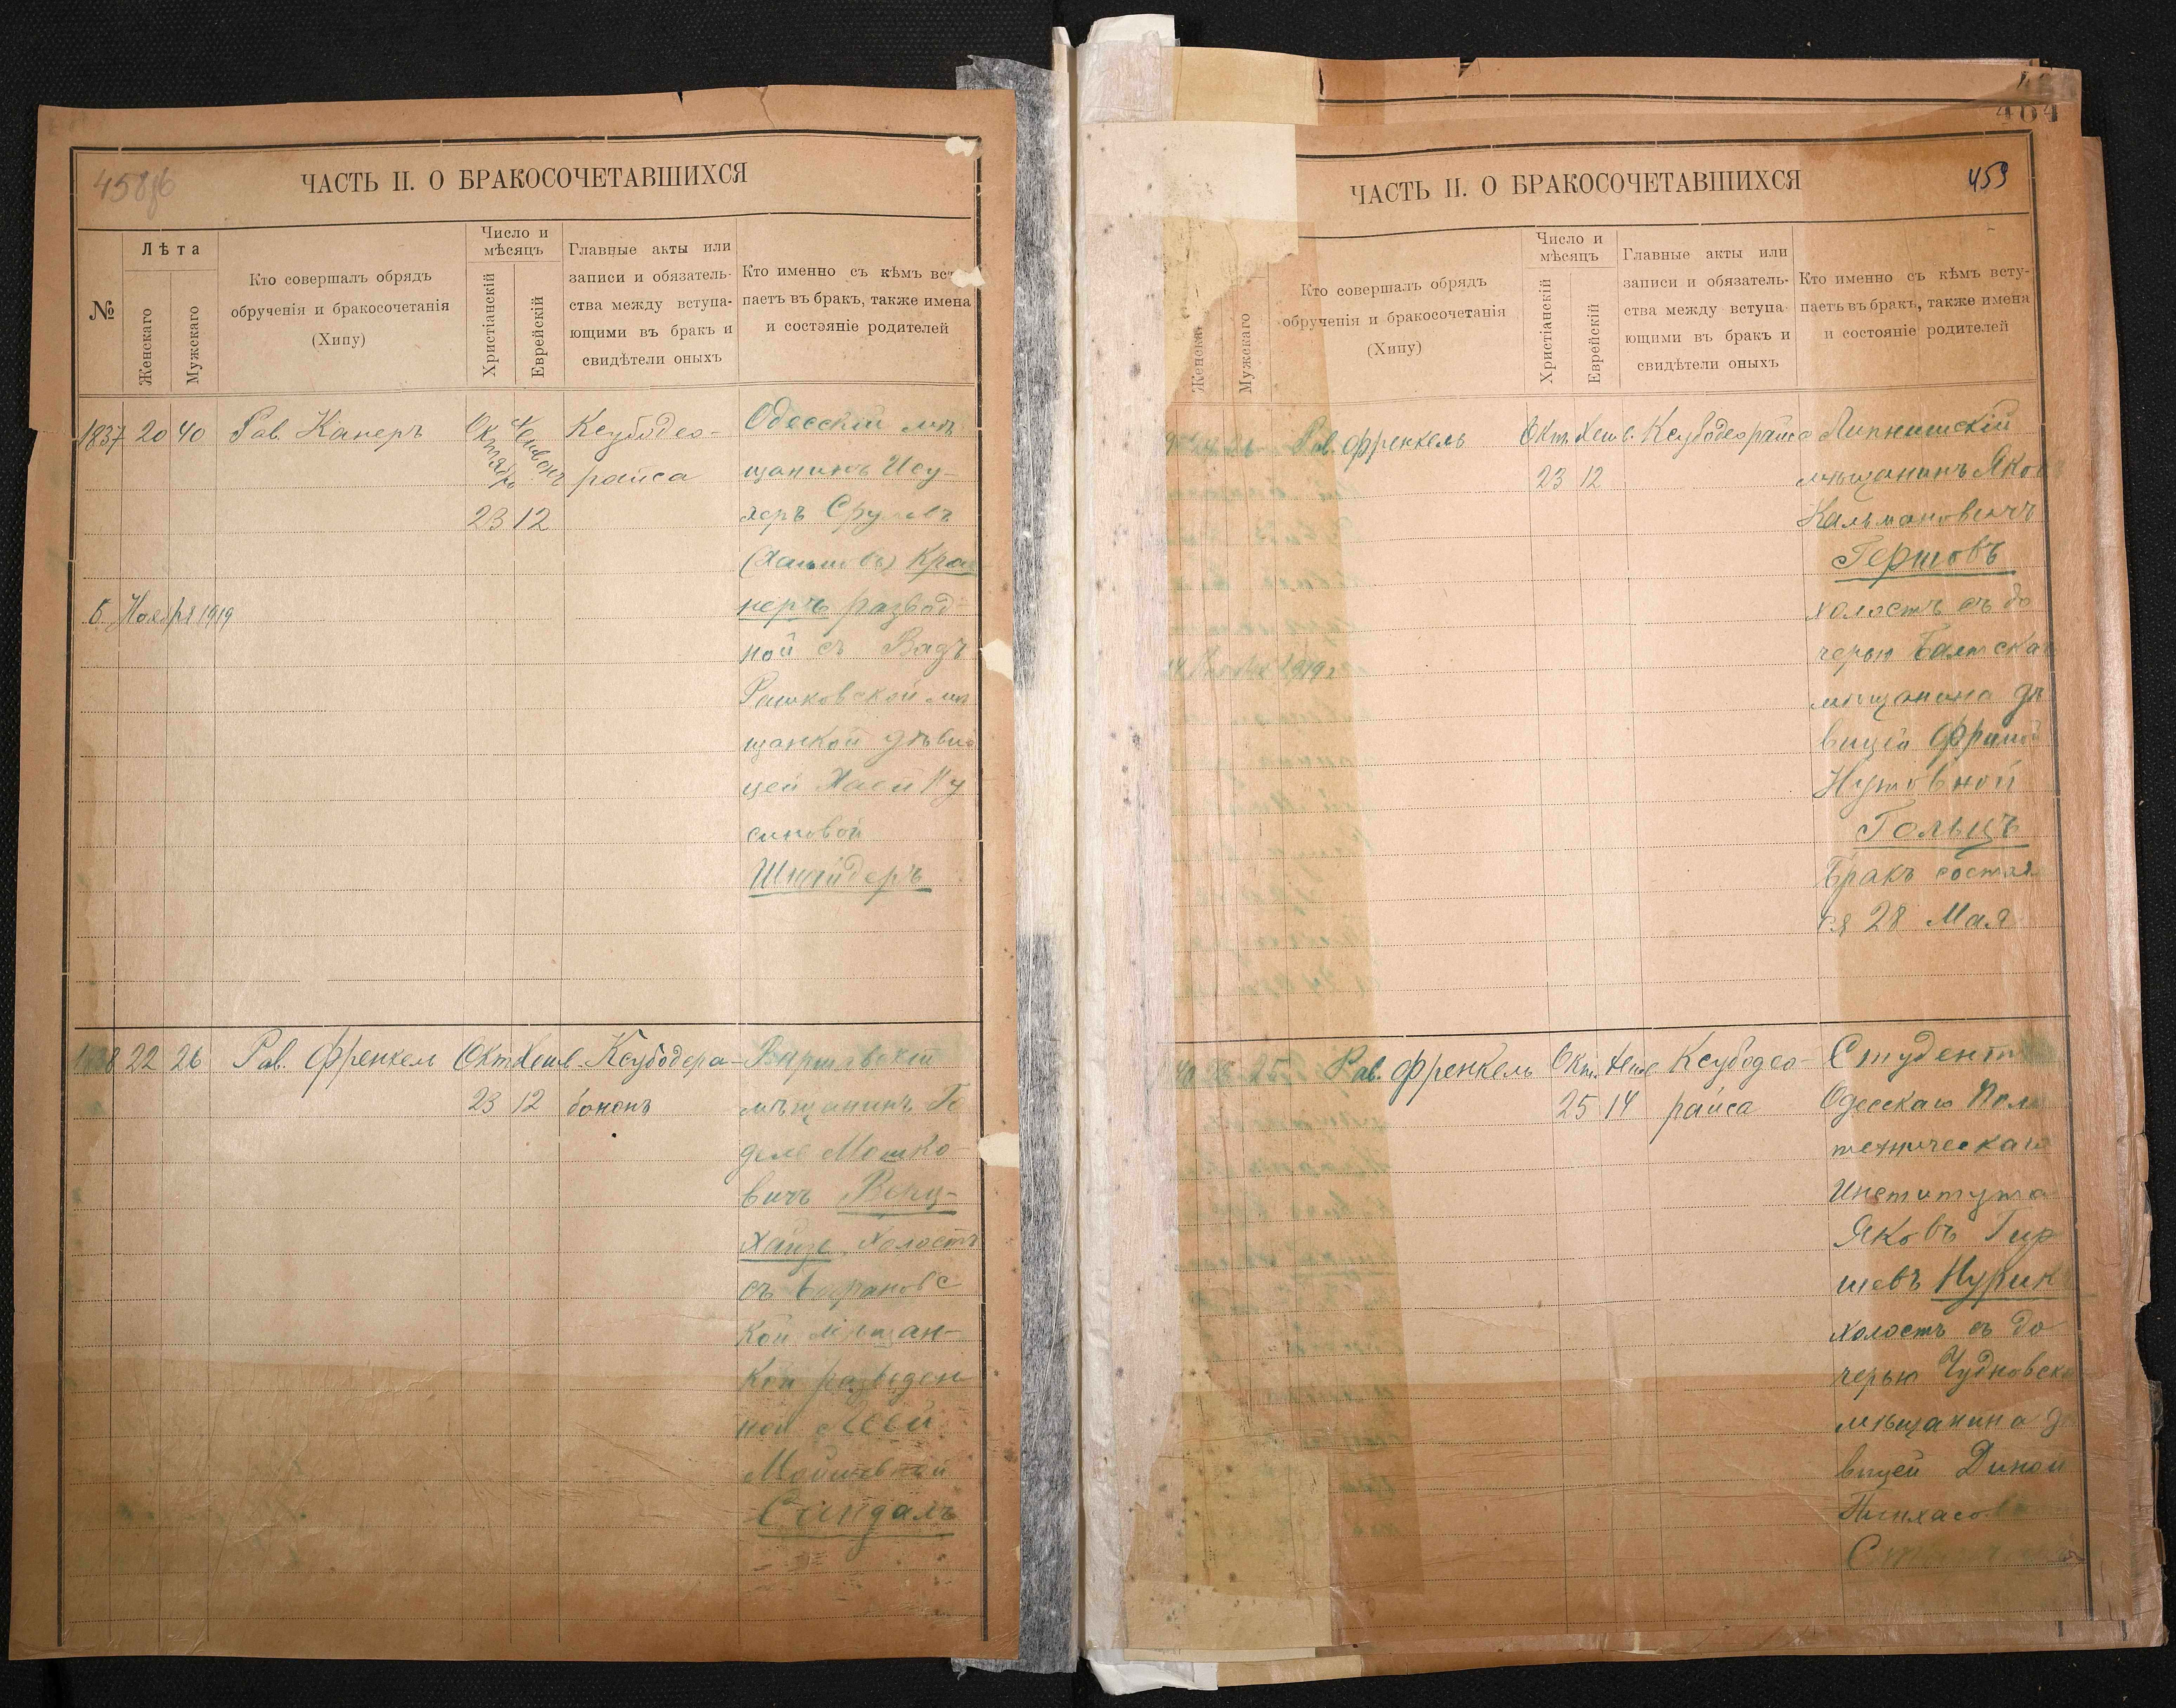 458об
ЧАСТЬ II. О БРАКОСОЧЕТАВШИХСЯ
№
Лѣта
Женскаго
Мужскаго
Кто совершалъ обрядъ
обрученія и бракосочетанія
(Хипу)
Число и
мѣсяцъ
Христіанскій
Еврейскій
Главные акты или
записи и обязатель-
ства между вступа-
ющими въ бракъ и
свидѣтели оныхъ
Кто именно съ кѣмъ вст
паетъ въ бракъ, также имена
и состояніе родителей
1837 20 40 Рав. Канеръ
Октябрь
23 12
Ксубодео-
райса
Одесскій мѣ
щанинъ Ису-
херъ Срулевъ
Кра
неръ развод
ной съ Вадъ
Рашковской мѣ
щанкой дѣви
цей Хаей Ну
симовой
Шнейдеръ
6 Ноября 1919
1838 22 26 Рав. Френкель Окт. Хешв.
23 12
Ксубодера-
бононъ
мѣщанинъ Го
дель Мошко-
вичъ Венц-
Хайзе, холостъ
съ
кой мѣщан-
кой разведен
ной Леей
Мойшевной
Сандалъ
464
459
ЧАСТЬ II. О БРАКОСОЧЕТАВШИХСЯ
Женска
Мужскаго
Кто совершалъ обрядъ
обрученія и бракосочетанія
(Хипу)
Число и
мѣсяцъ
Христіанскій
Еврейскій
Главные акты или
записи и обязатель-
ства между вступа-
ющими въ бракъ и
свидѣтели оныхъ
Кто именно съ кѣмъ всту-
паетъ въ бракъ, также имена
и состояніе родителей
Рав. Френкель Окт. Хешв. Ксубодеорайса
23 12
Липнишскій
мѣщанинъ Яков
Кальмановичъ
Гершовъ
холостъ съ до
черью Балтска
мѣщанина дѣ
вицей Фримой
Нутовной
Гольцъ
Бракъ состоя
ся 28 Мая
1919
25 Рав. Френкель Окт. Хешв
25 14
Ксубодео-
райса
Студентъ
Одесскаго Поли
техническаго
Института
Яковъ Гир
шевъ Нурик
холостъ съ до
черью Чудновска
мѣщанина д
вицей Диной
Пинхасов